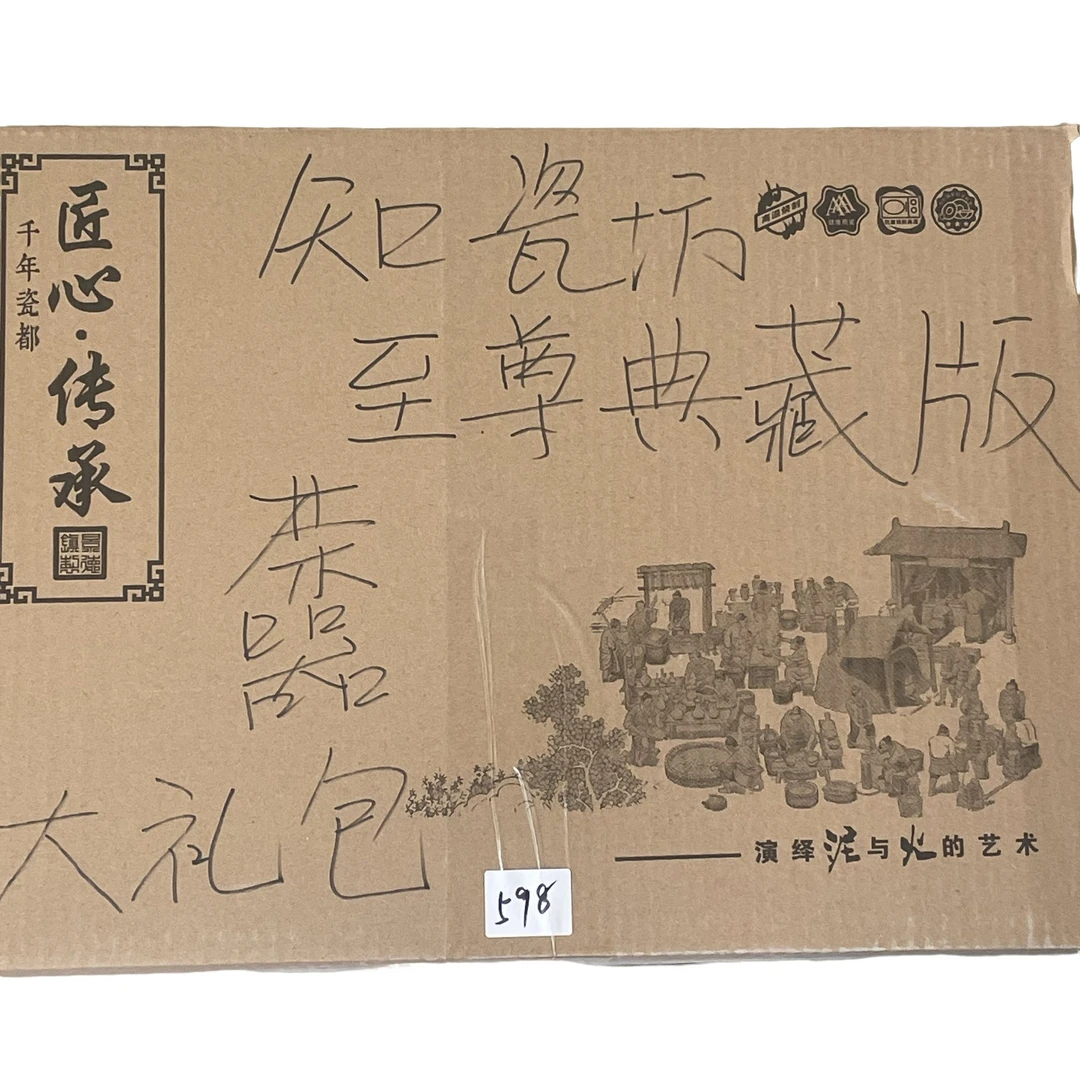 匠心·传承
千年瓷都
景德
镇制
知瓷坊
至尊典藏版
茶器
大礼包
598
演绎泥与火的艺术